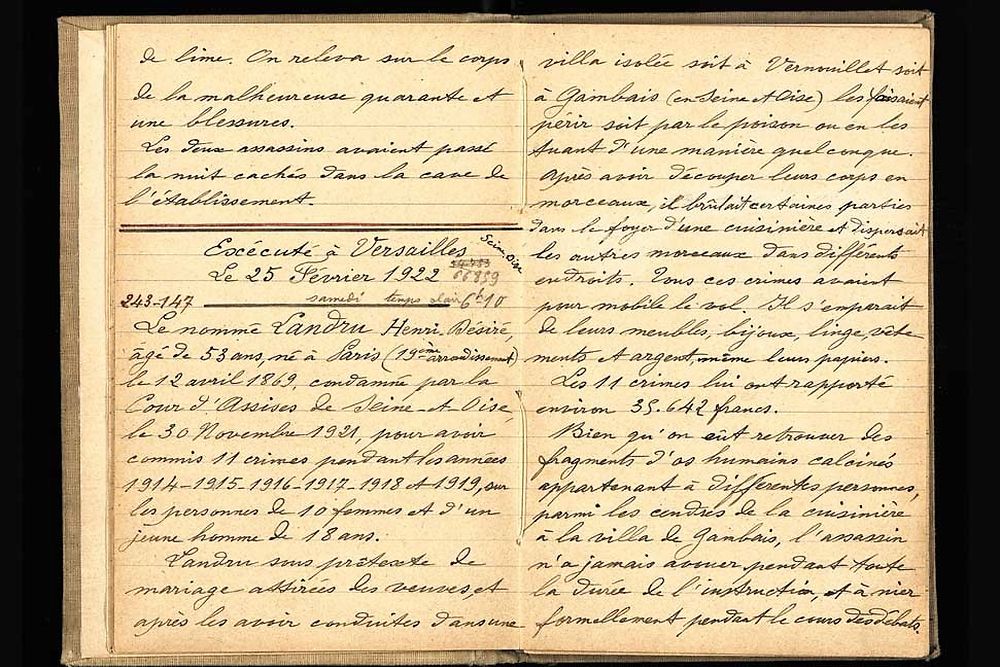 de lime. On releva sur le corps
de la malheureuse quarante et
une blessures.
Les deux assassins avaient passé
la nuit cachés dans la cave de
l'établissement.
Exécuté à Versailles Seine-Oise
Le 25 Février 1922 66859
243-147 samedi temps clair 6h10
Le nommé Landru Henri Désiré,
âgé de 53 ans, né à Paris (19ème arrondissement)
le 12 avril 1869, condamné par la
Cour d'Assises de Seine-et-Oise,
le 30 Novembre 1921, pour avoir
commis 11 crimes pendant les années
1914-1915-1916-1917-1918 et 1919, sur
les personnes de 10 femmes et d'un
jeune homme de 18 ans.
Landru sous prétexte de
mariage attirées des veuves, et
après les avoir conduites dans une
villa isolée soit à Vernouillet soit
à Gambais (en Seine et Oise) les faisaient
périr soit par le poison ou en les
tuant d'une manière quelconque.
Après avoir découper leurs corps en
morceaux, il brûlait certaines parties
dans le foyer d'une cuisinière et dispersait
les autres morceaux dans différents
endroits. Tous ces crimes avaient
pour mobile le vol. Il s'emparait
de leurs meubles, bijoux, linge, vête
ments et argent, même leurs papiers.
Les 11 crimes lui ont rapporté
environ 35.642 francs.
Bien qu'on eût retrouver des
fragments d'os humains calcinés
appartenant à différentes personnes,
parmi les cendres de la cuisinière
à la villa de Gambais, l'assassin
n'a jamais avouer pendant toute
la durée de l'instruction, et à nier
formellement pendant le cours des débats.